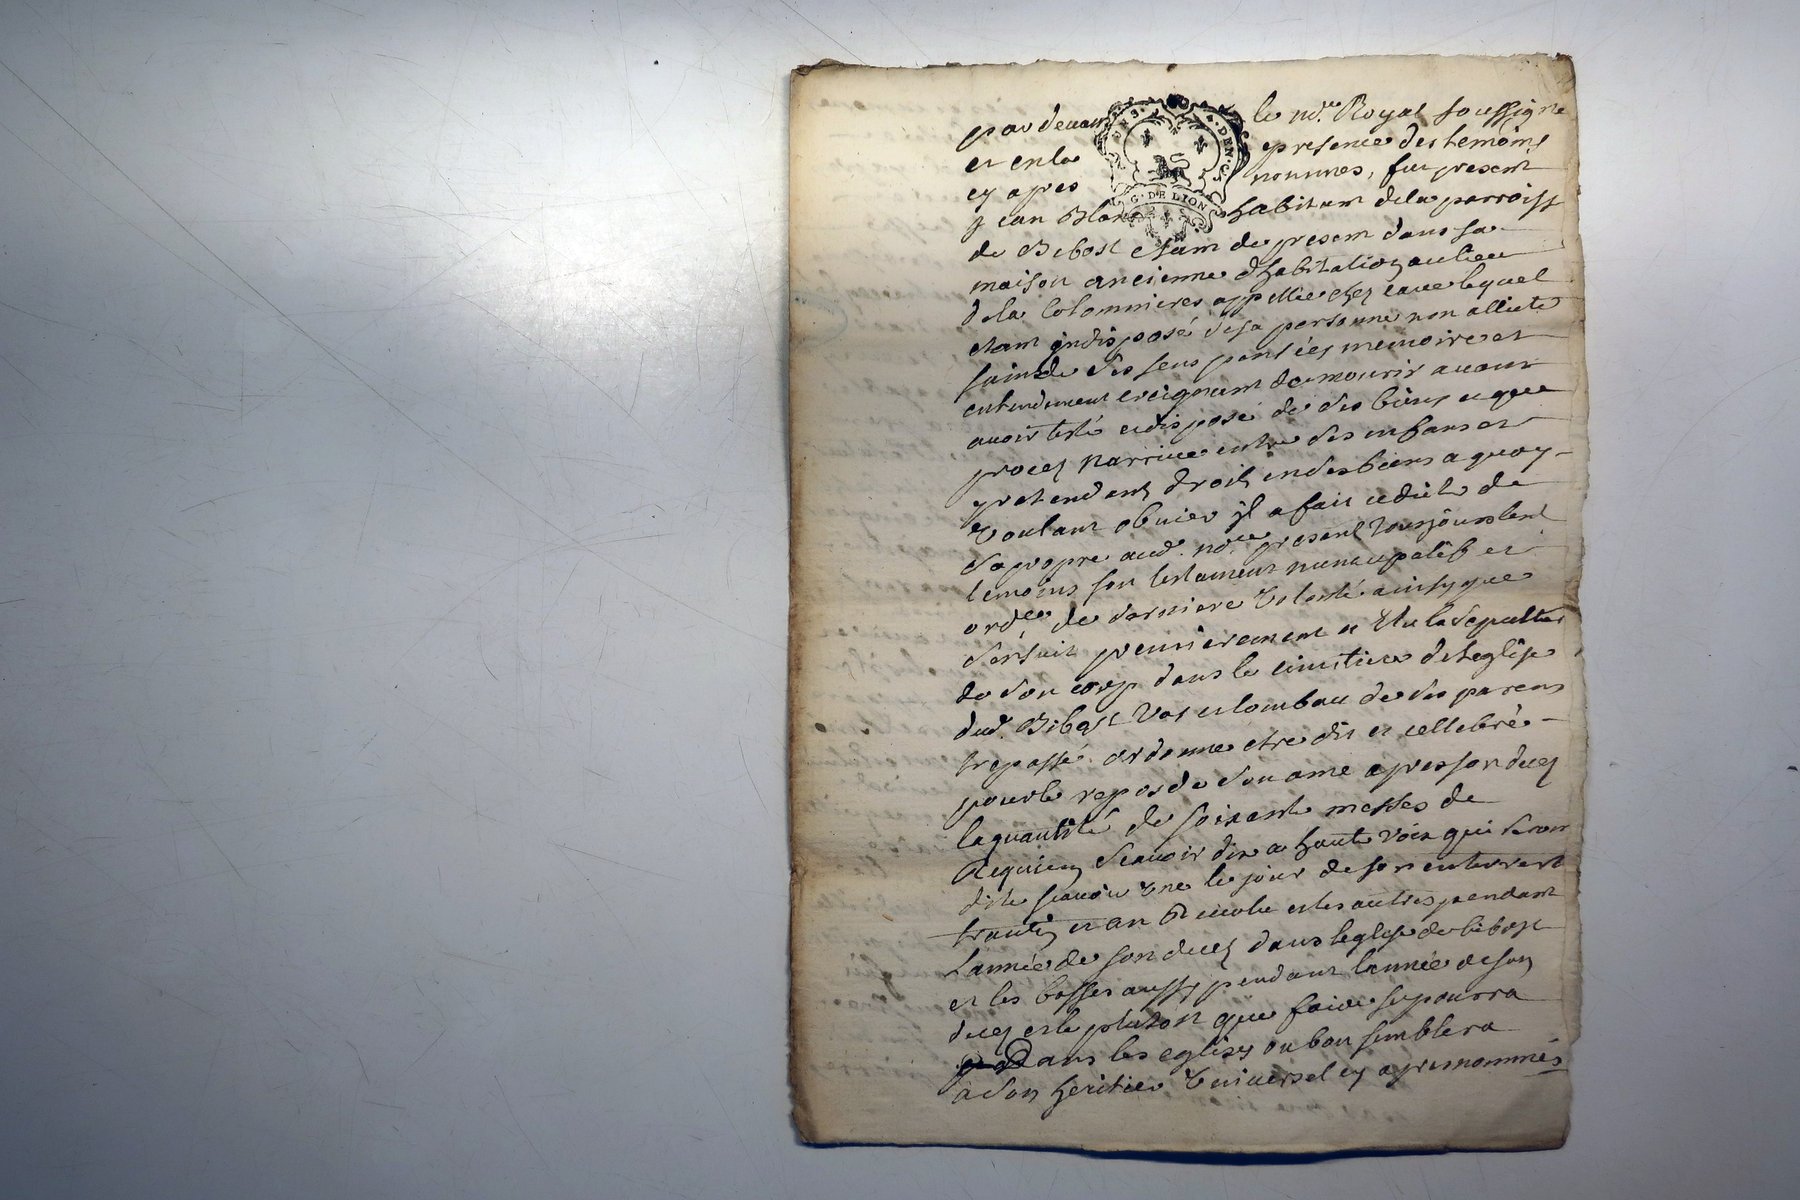 pardevant le no.re Royal soussigne
et en la presence des temoins
cy apres nommes, fut present
G. DE LION
Jean Blanc habitant de la parroisse
de Bibost etant de present dans sa
maison ancienne d'habitation au lieu
de la Colonnieres appellée chez lequel
etant indisposé de sa personne non allicte
sain de ses sens pensées memoire et
entendement creignant de mourir avant
avoir testé et disposé de ses biens et que
procez narrive entre ses enfans et
pretendent droit en ses biens a quoy
Voulant obvier il a fait et dicté de
sa propre aud. no.re present tousjours lesd
temoins son testament nuncupatif et
ord.ce de derniere Volonté ainsy que
s'ensuit premierement a Elu la sepulture
de son corp dans le cimitiere de leglise
dud. Bibost Vas et tombau de ses parens
trepassé ordonne etre dit et cellebré
pour le repos de son ame apres son decez
la quantité de soixante messes de
Requiem scavoir dix a haute voix qui seront
dite scavoir Une le jour de son enterrement
trantin et an Revolu et les autres pendant
Lannée de son decez dans leglise de bibost
et les basses aussy pendant lannée de son
decez et le plutost que faire se pourra
Dans les eglises ou bon semblera
à son heritier Universel cy apres nommés